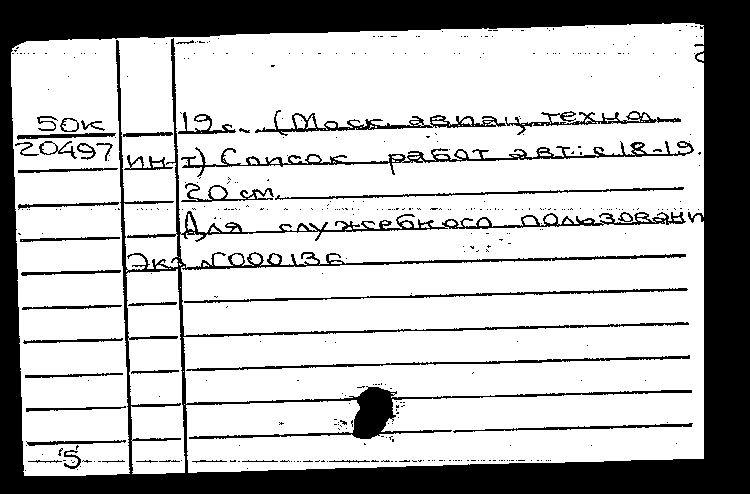 50к 19 с. (Моск. авиац. технол.
20497 ин-т) Список работ авт.: с.18-19.
20 см.
Для служебного пользовани
Экз №000136
'5'